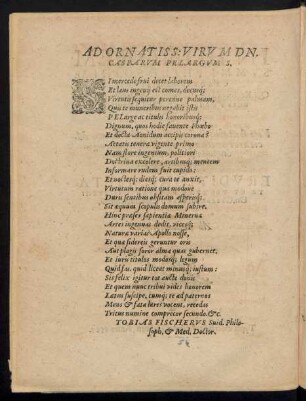 AD ORNATISS: VIRVM DN.
CASPARVM PELARGVM S.
SI mercede frui decet laborem
Et laus ingenij est comes, decusq;
Virtutis sequitur perenne palmam,
Quis te muneribus negabit istis
PELarge ac titulis honoribusq;
Dignum, quos hodie favente Phœbo
Et docta Aonidum accipis corona?
Ætatis tenera vigente primo
Nam flore ingenium, politiori
Doctrina excolere, artibusq; mentem
Informare rudem fuit cupido:
Et noctesq; diesq; cura te anxit,
Virtutum ratione qua modove
Duris sentibus obsitam asperosq;
Sit æquum scopulos domum subire.
Hinc præses sapientiæ Minerva
Artes ingenuas dedit, vicesq;
Naturæ varias Apollo nosse,
Et qua sidereis geruntur oris
Aut plagis soror alma quas gubernat,
Et juris titulos modosq; legum
Quid fas, quid liceat minusq; justum:
Sis felix igitur tot aucte donis
Et quem nunc tribui vides honorem
Lætus suscipe, cumq; te ad paternos
Mens & fata lares vocent, recedas
Tritus numine comprecor secundo. &c.
TOBIAS FISCHERVS Suid. Philo-
soph. & Med. Doctor.